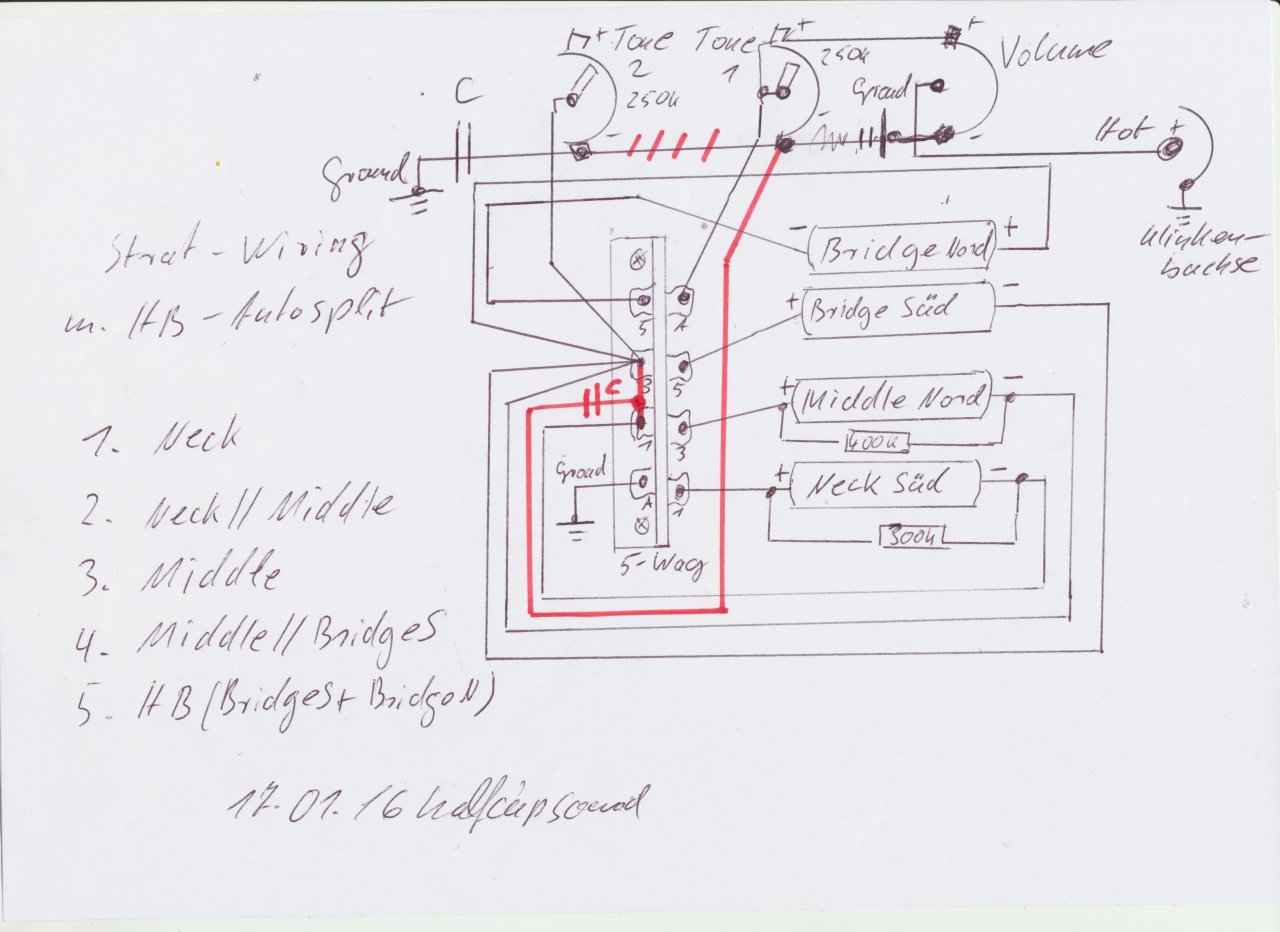 Tone Tone
2 1
C
250k
250k
Volume
Ground
Hot
+
Ground
Strat-Wiring
m. HB-Autosplit
Klinken-
buchse
- Bridge Nord +
+ Bridge Süd -
+ Middle Nord -
400k
+ Neck Süd -
300k
5 A
3 5
C
1 3
Ground
A 1
5-Wag
1. Neck
2. Neck//Middle
3. Middle
4. Middle//BridgeS
5. HB (BridgeS+BridgeN)
17.01.16